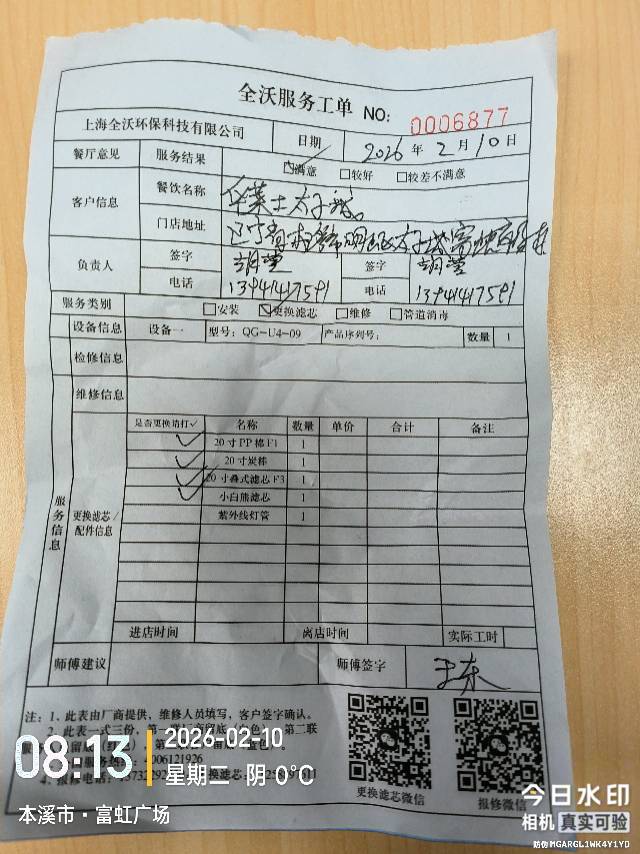 全沃服务工单 NO: 0006877
上海全沃环保科技有限公司 日期 2026 年 2 月 10 日
餐厅意见 服务结果 ☑满意 □较好 □较差不满意
客户信息 餐饮名称 华莱士太子城。
门店地址 辽宁省 明山区太子城富虹
负责人 签字 胡莹 签字 胡莹
电话 13941417591 电话 13941417591
服务类别 □安装 ☑更换滤芯 □维修 □管道消毒
设备信息 设备一 型号: QG-U4-09 产品序列号: 数量 1
检修信息
维修信息
服务信息 更换滤芯/配件信息
是否更换请打✓ 名称 数量 单价 合计 备注
✓ 20寸PP棉F1 1
✓ 20寸炭棒 1
✓ 20寸叠式滤芯F3 1
✓ 小白熊滤芯 1
紫外线灯管 1
进店时间 离店时间 实际工时
师傅建议 师傅签字 王东
注: 1、此表由厂商提供, 维修人员填写, 客户签字确认。
2、此表一式三份, 第一联厂商留底(白色), 第二联
4006121926
更换滤芯微信 报修微信
08:13
2026-02-10
星期二 阴 0°C
本溪市·富虹广场
今日水印
相机 真实可验
防伪 MGARGL1WK4Y1YD